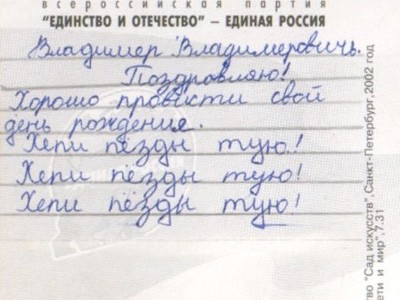 всероссийская партия
"ЕДИНСТВО И ОТЕЧЕСТВО" – ЕДИНАЯ РОССИЯ
Владимер Владимеровичь.
Поздровляю!
Хорошо провисти свой
день рождения.
Хепи пёзды тую!
Хепи пёзды тую!
Хепи пёзды тую!
тво "Сад искусств", Санкт-Петербург, 2002 год
ети и мир", 7.31